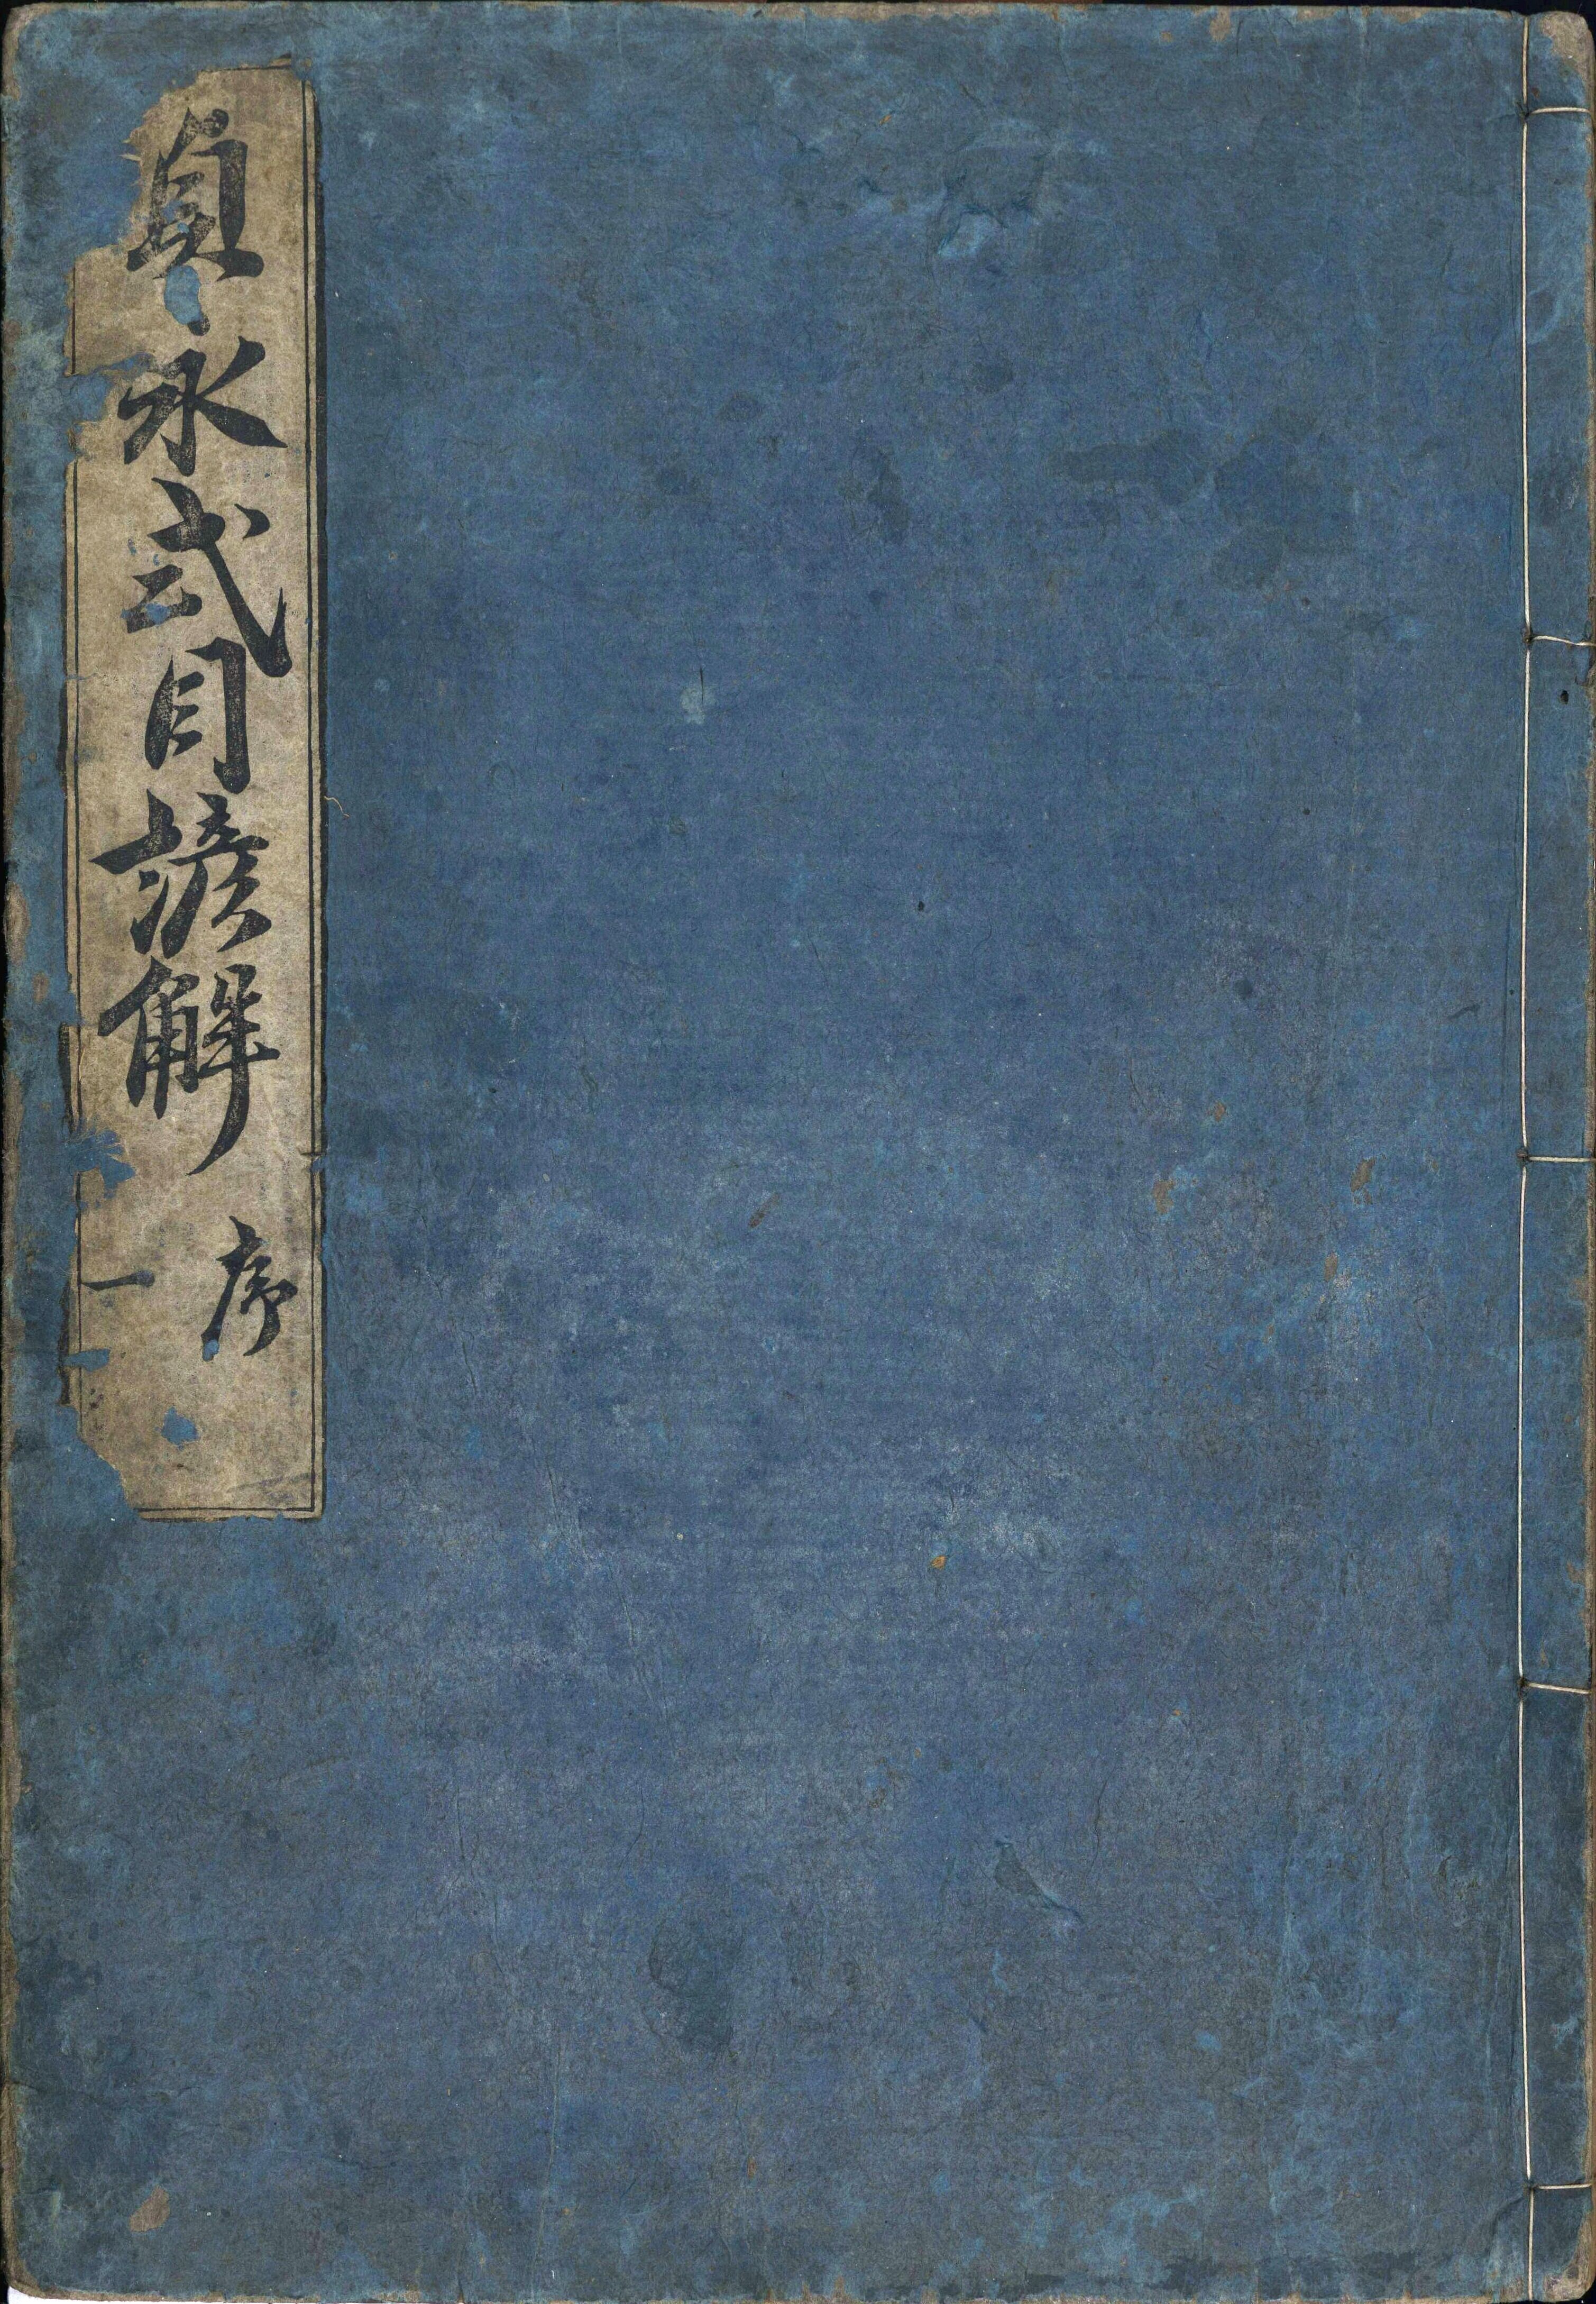 貞永式目諺解
序
一